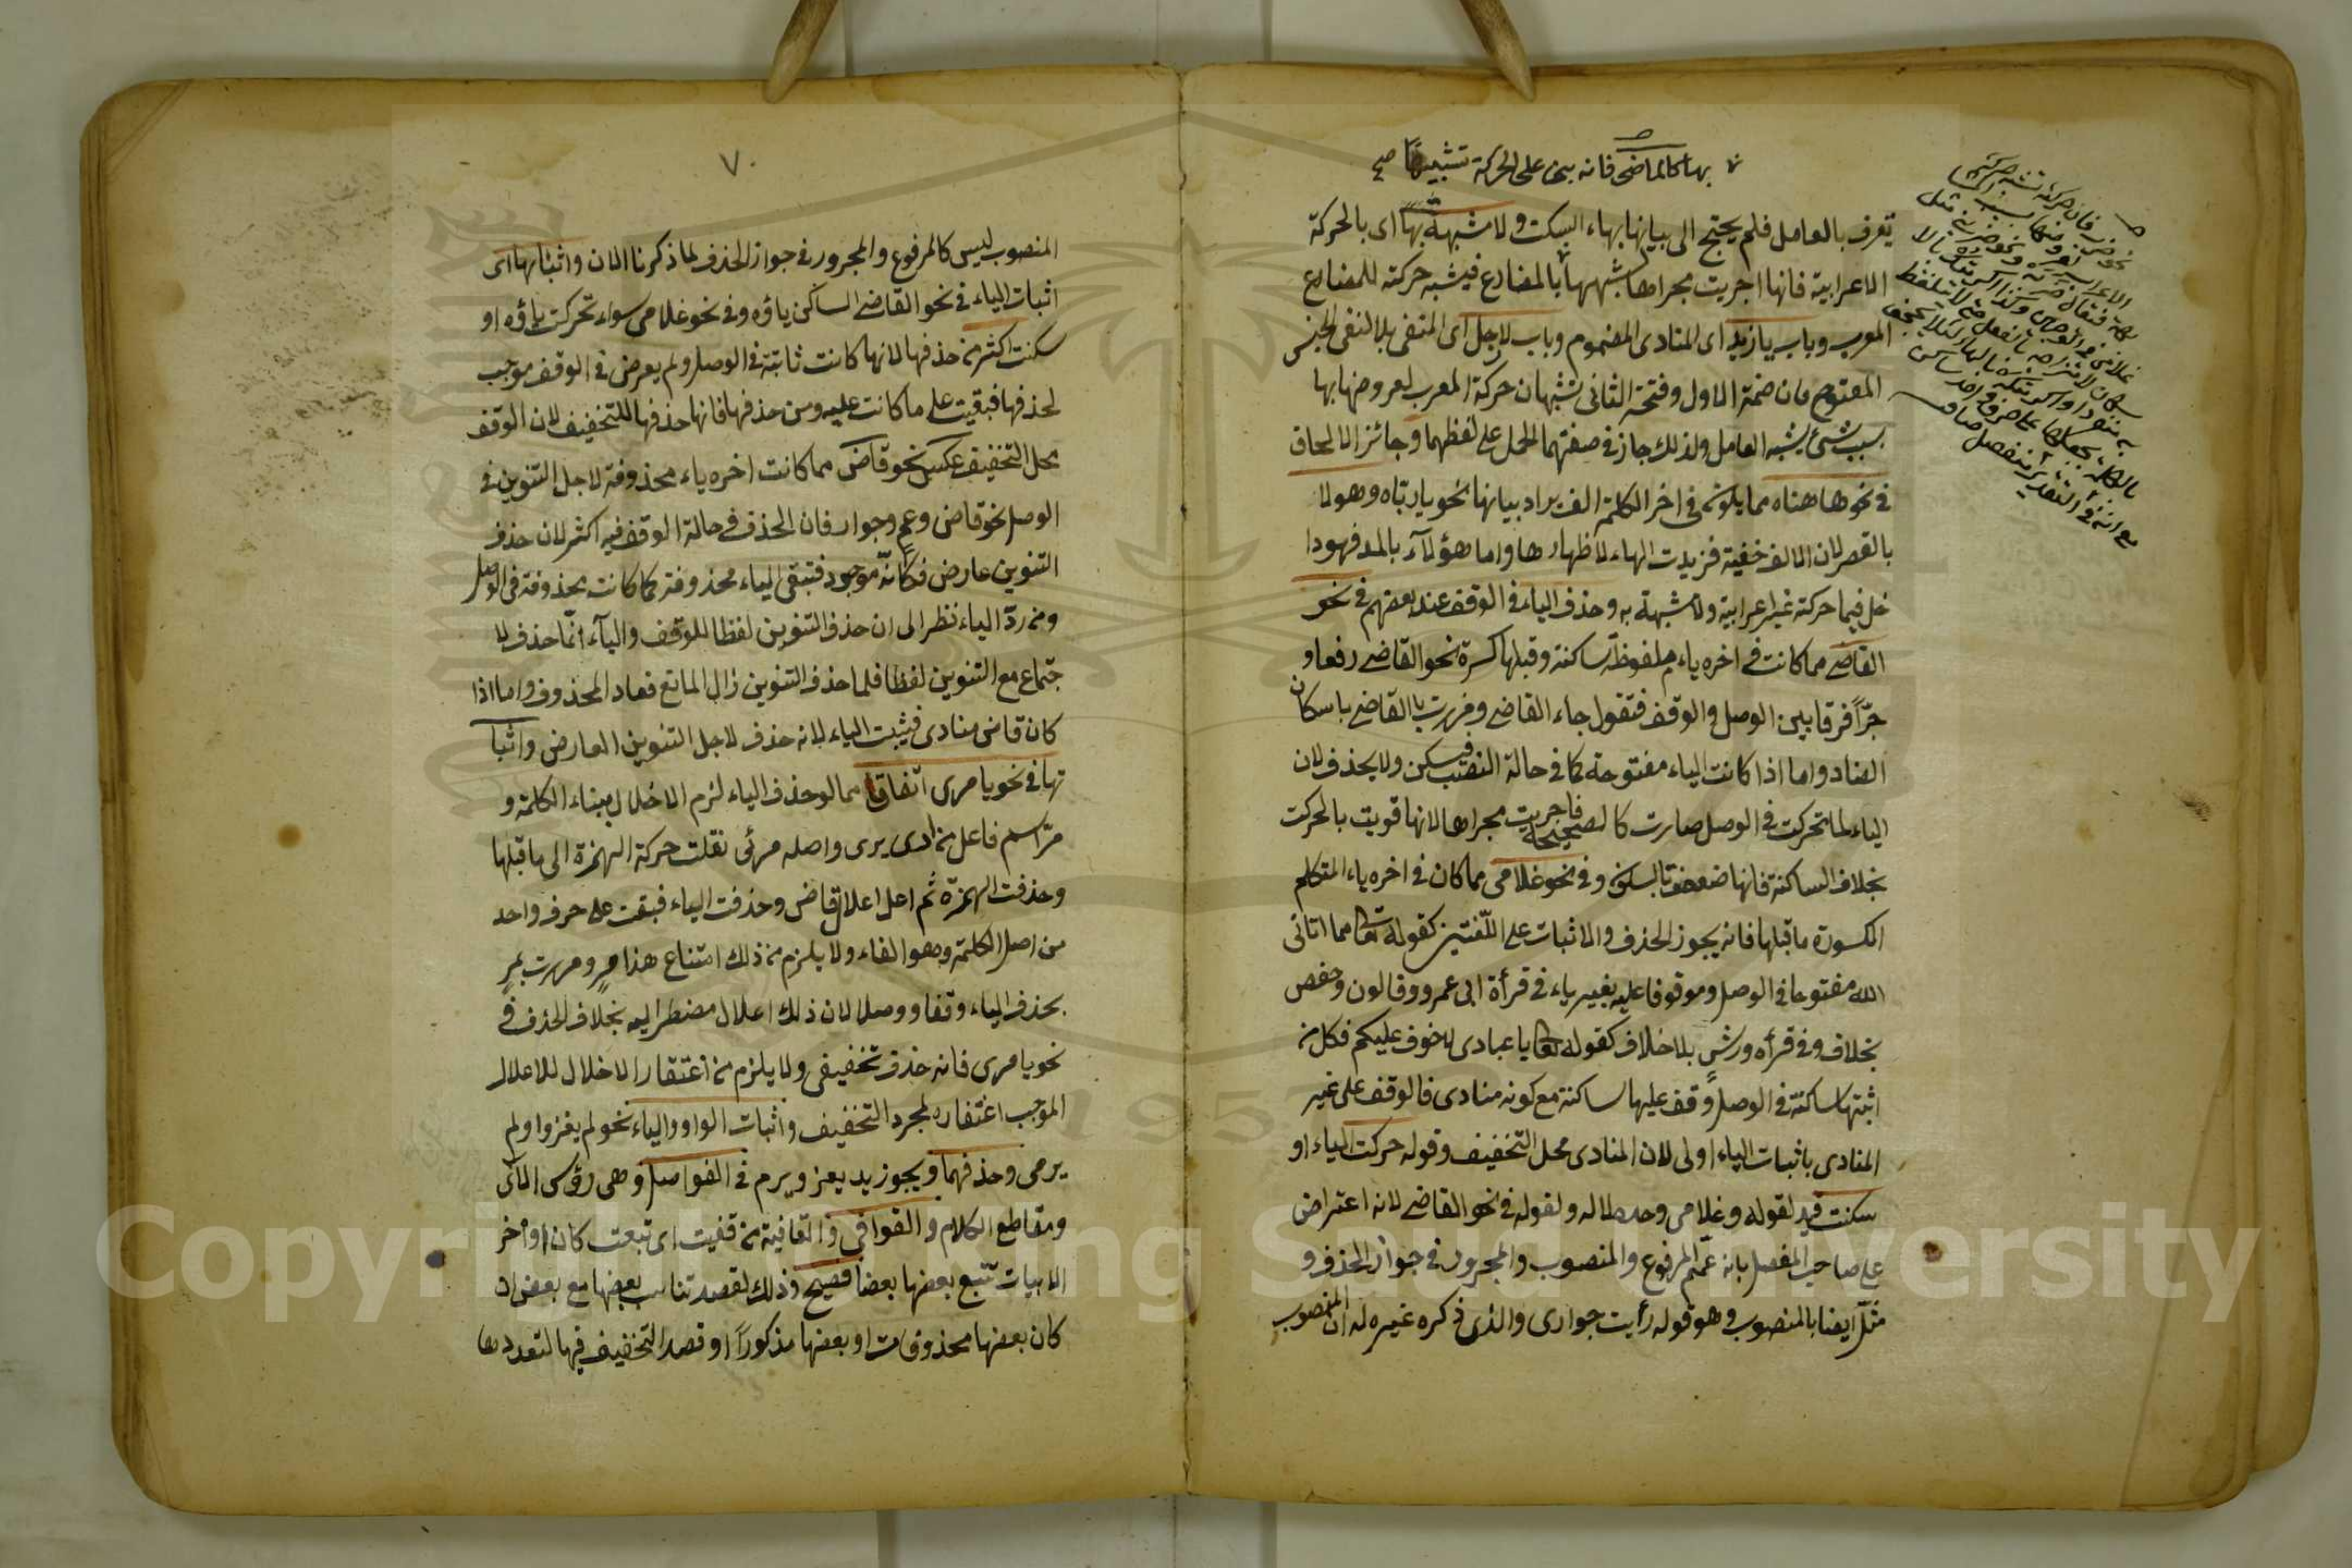 بها كالماضى فانه بنى على الحركة تشبيها صح
تعرف بالعامل فلم يحتج الى بيانها بهاء السكت ولا مشبهة بها اى بالحركة
الاعرابية فانها اجريت مجراها لشبهها بالمضارع فيشبه حركته للمضارع
المعرب وباب يا زيد اى المنادى المضموم وباب لا رجل اى المنفى بلا لنفى الجنس
المفتوح فان ضمة الاول وفتحة الثانى تشبهان حركة المعرب لعروضها بها
بسبب شئ يشبه العامل ولذلك جاز فى صفتهما الحمل على لفظهما وجائز الالحاق
فى نحو ها هناه مما يكون فى اخر الكلمة الف يراد بيانها نحو يا رباه وهولا
بالقصر لان الالف خفية فزيدت الهاء لاظهارها واما هؤلآء بالمد فهو دا
خل فيما حركته غير اعرابية ولا مشبهة به وحذف الياء فى الوقف عند بعضهم فى نحو
القاضى مما كانت فى اخره ياء ملفوظة ساكنة وقبلها كسرة نحو القاضى رفعا و
جرّاً فرقا بين الوصل والوقف فتقول جاء القاض ومررت بالقاض باسكان
الضاد واما اذا كانت الياء مفتوحة كما فى حالة النصب فيسكن ولا يحذف لان
الياء لما تحركت فى الوصل صارت كالصحيحة فاجريت مجراها لانها قويت بالحركت
بخلاف الساكنة فانها ضعفت بالسكون وفى نحو غلامى مما كان فى اخره ياء المتكلم
الكسورة ما قبلها فانه يجوز الحذف والاثبات على اللغتين كقوله تعا مما اتانى
الله مفتوحا فى الوصل وموقوفا عليه بغير ياء فى قرأة ابى عمرو وقالون وحفص
بخلاف وفى قرأه ورش بلا خلاف كقوله تعا يا عبادى لا خوف عليكم فكل من
اثبتها ساكنة فى الوصل وقف عليها ساكنة مع كونه منادى فالوقف على غير
المنادى باثبات الياء اولى لان المنادى محل التخفيف وقوله حركت الياء او
سكنت قيد لقوله وغلامى وحده لا له ولقوله فى نحو القاضى لانه اعتراض
على صاحب المفصل بانه عمّم المرفوع والمنصوب والمجرور فى جواز الحذف و
مثّل ايضا بالمنصوب وهو قوله رأيت جوارى والذى ذكره غيره له ان المنصوب
٧٠
المنصوب ليس كالمرفوع والمجرور فى جواز الحذف لما ذكرنا الان واثباتها اى
اثبات الياء فى نحو القاضى الساكن ياؤه وفى نحو غلامى سواء تحركت ياؤه او
سكنت اكثر من حذفها لانها كانت ثابتة فى الوصل ولم يعرض فى الوقف موجب
لحذفها فبقيت على ما كانت عليه ومن حذفها فانها حذفها للتخفيف لان الوقف
محل التخفيف عكس نحو قاض مما كانت اخره ياء محذوفة لاجل التنوين فى
الوصل نحو قاض وعمٍ وجوار فان الحذف فى حالة الوقف فيه اكثر لان حذف
التنوين عارض فكأنّه موجود فتبقى الياء محذوفة كما كانت محذوفة فى الوصل
ومن ردّ الياء نظر الى ان حذف التنوين لفظا للوقف والياء انّما حذف لا
جتماع مع التنوين لفظا فلما حذف التنوين زال المانع فعاد المحذوف واما اذا
كان قاض منادى فيثبت الياء لانه حذف لاجل التنوين العارض واثبا
تها فى نحو يا مرى اتفاقا مما لو حذف الياء لزم الاخلال ببناء الكلمة و
مرّ اسم فاعل من ارى يرى واصله مرئى نقلت حركة الهمزة الى ما قبلها
وحذفت الهمزة ثم اعل اعلال قاض وحذفت الياء فبقت على حرف واحد
من اصل الكلمة وهو الفاء ولا يلزم من ذلك امتناع هذا مرٍ ومررت بمرٍ
بحذف الياء وقفا ووصلا لان ذلك اعلال مضطر اليه بخلاف الحذف فى
نحو يا مرى فانه حذف تخفيفى ولا يلزم من اغتفار الاخلال للاعلال
الموجب اغتفاره لمجرد التخفيف واثبات الواو والياء نحو لم يغزوا ولم
يرمى وحذفهما ويجوز يد يغز ويرم فى الفواصل وهى رؤس الآى
ومقاطع الكلام والقوافى والقافية من قفيت اى تبعت كان اواخر
الابيات تتبع بعضها بعضا فصيح وذلك لقصد تناسب بعضها مع بعض اد
كان بعضها محذوفات او بعضها مذكوراً او قصد التخفيف فيها لتعددها